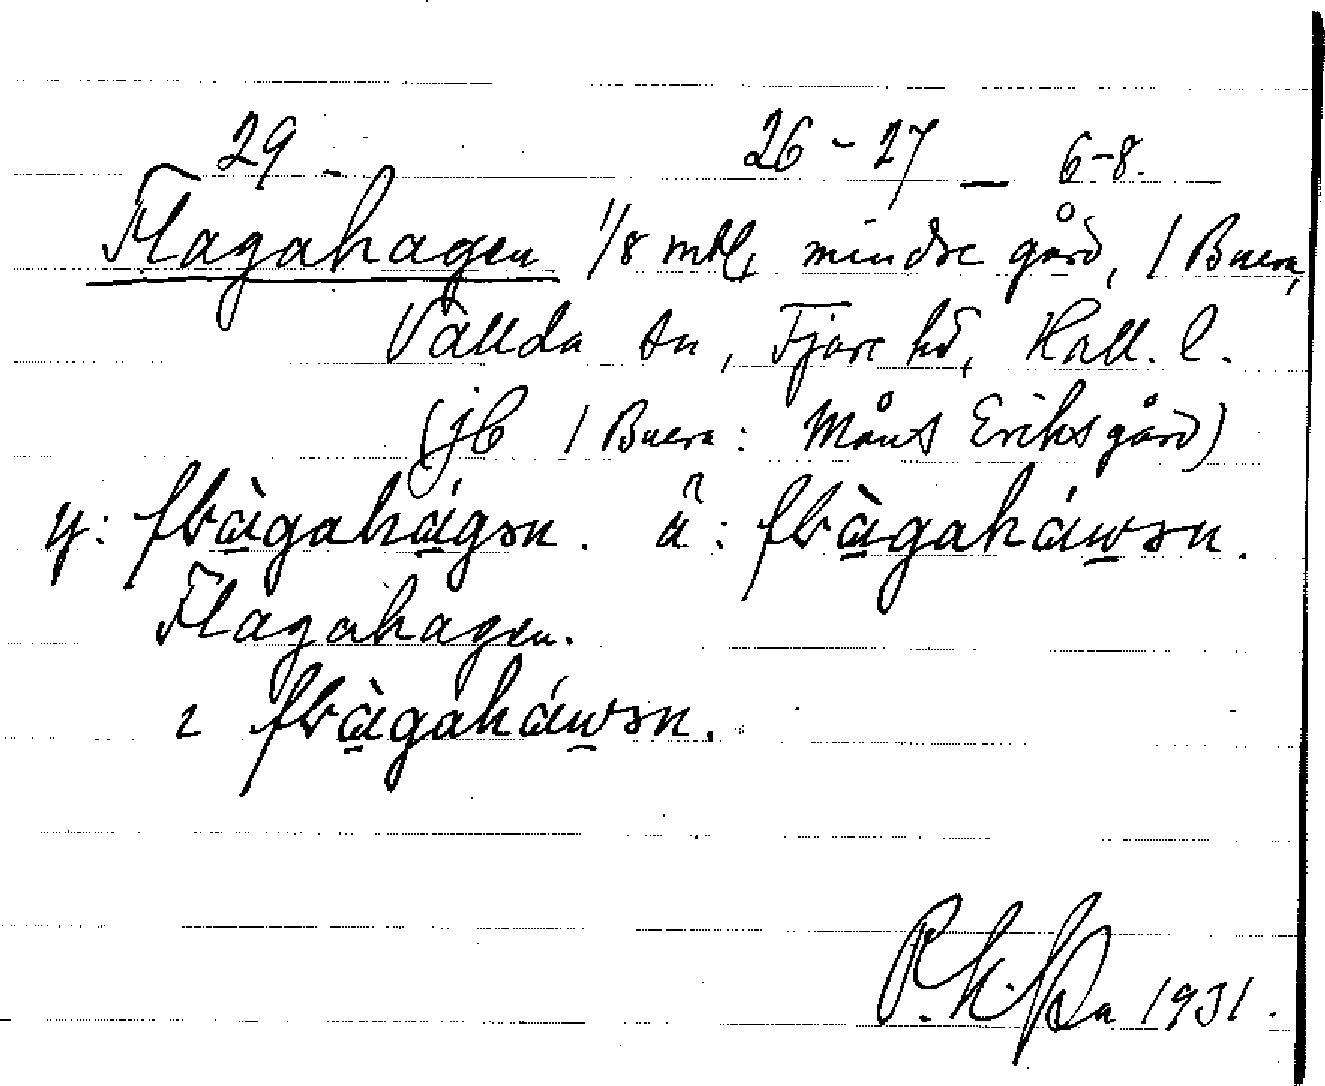 29 - 26 - 27 — 6-8.
Flagahagen 1/8 mtl, mindre gård, 1 Buera,
Vallda sn, Fjäre hd, Hall. l.
(jb 1 Buera: Måns Eriksgård)
y: flàgahágən. ä: flàgaháwən.
Flagahagen.
2 flàgaháwən.
1931.